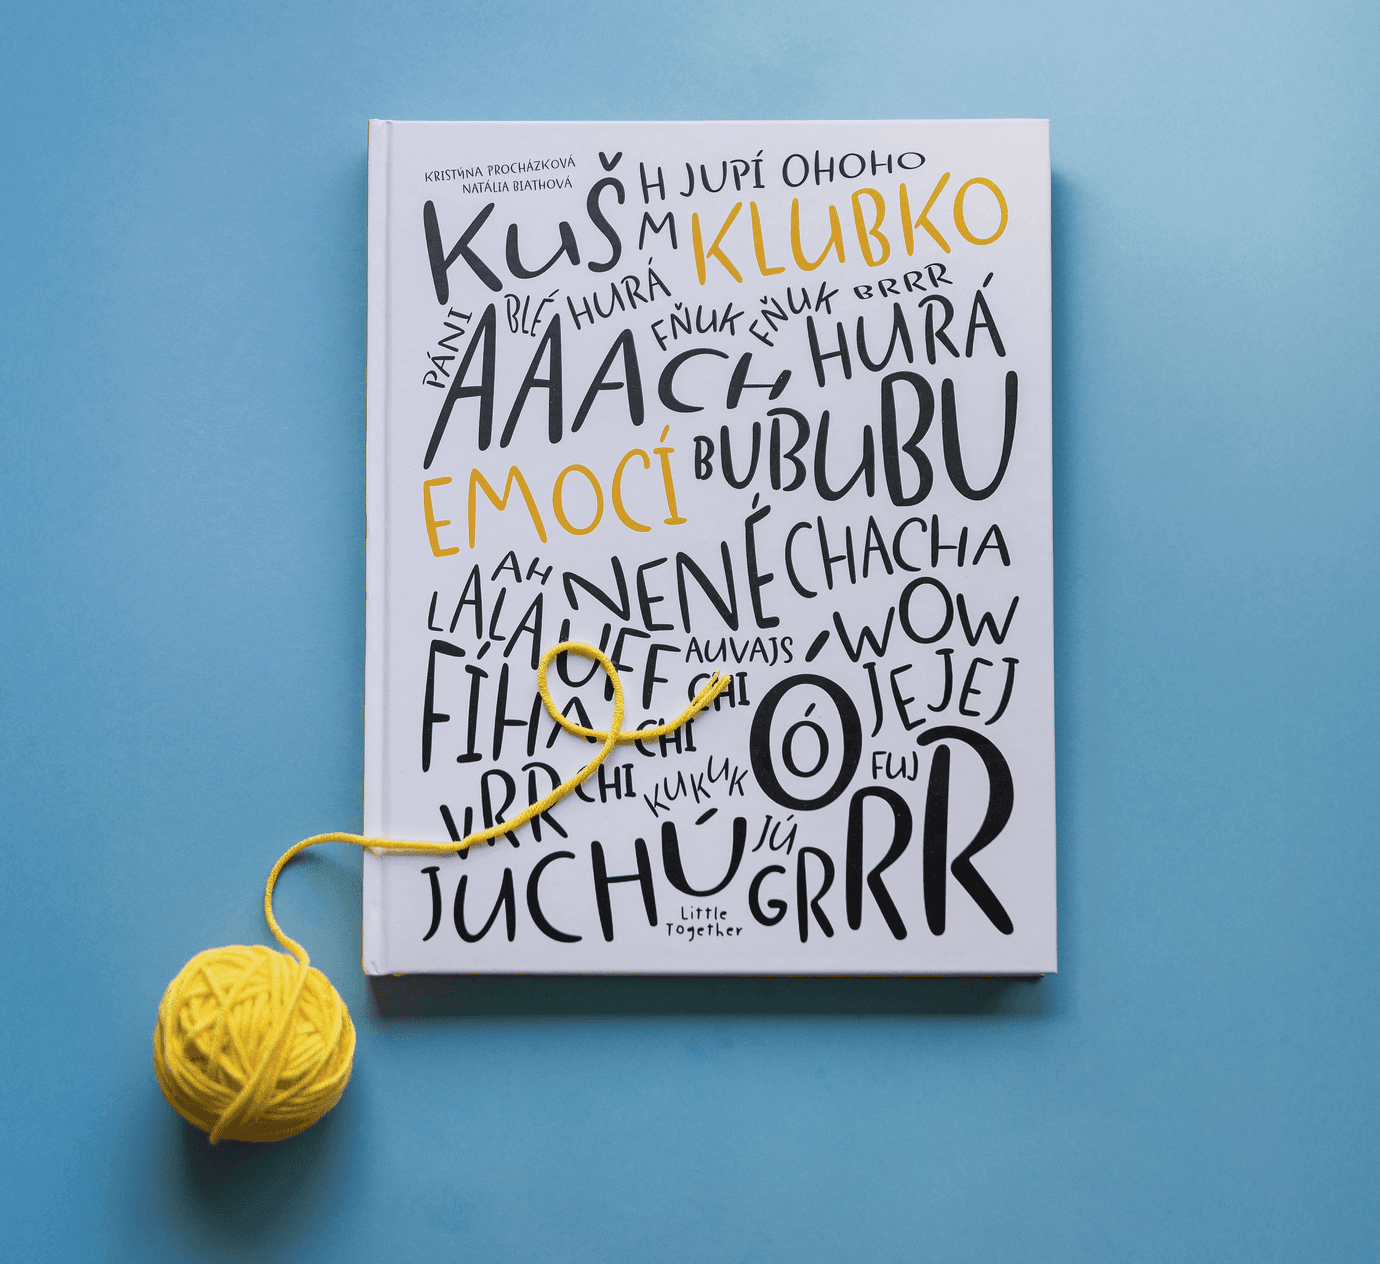 KRISTÝNA PROCHÁZKOVÁ
NATÁLIA BIATHOVÁ
KUŠ
HM
JUPÍ OHOHO
KLUBKO
PÁNI
BLÉ
HURÁ
FŇUK
FŇUK
BRRR
AÁAACH
HURÁ
EMOCÍ
BÚBUBU
AH
LALALA
NENÉ
CHACHA
UFF
AUVAJS
WOW
FÍHA
CHI
CHI
CHI
ÓÓ
JEJEJ
VRR
KUKUK
FUJ
JUCHÚ
JÚ
GRRR
Little
Together